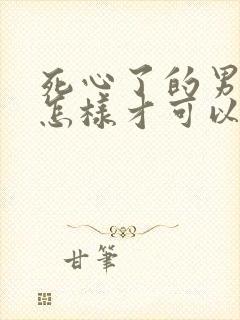 死心了的男
怎樣才可以
甘筆